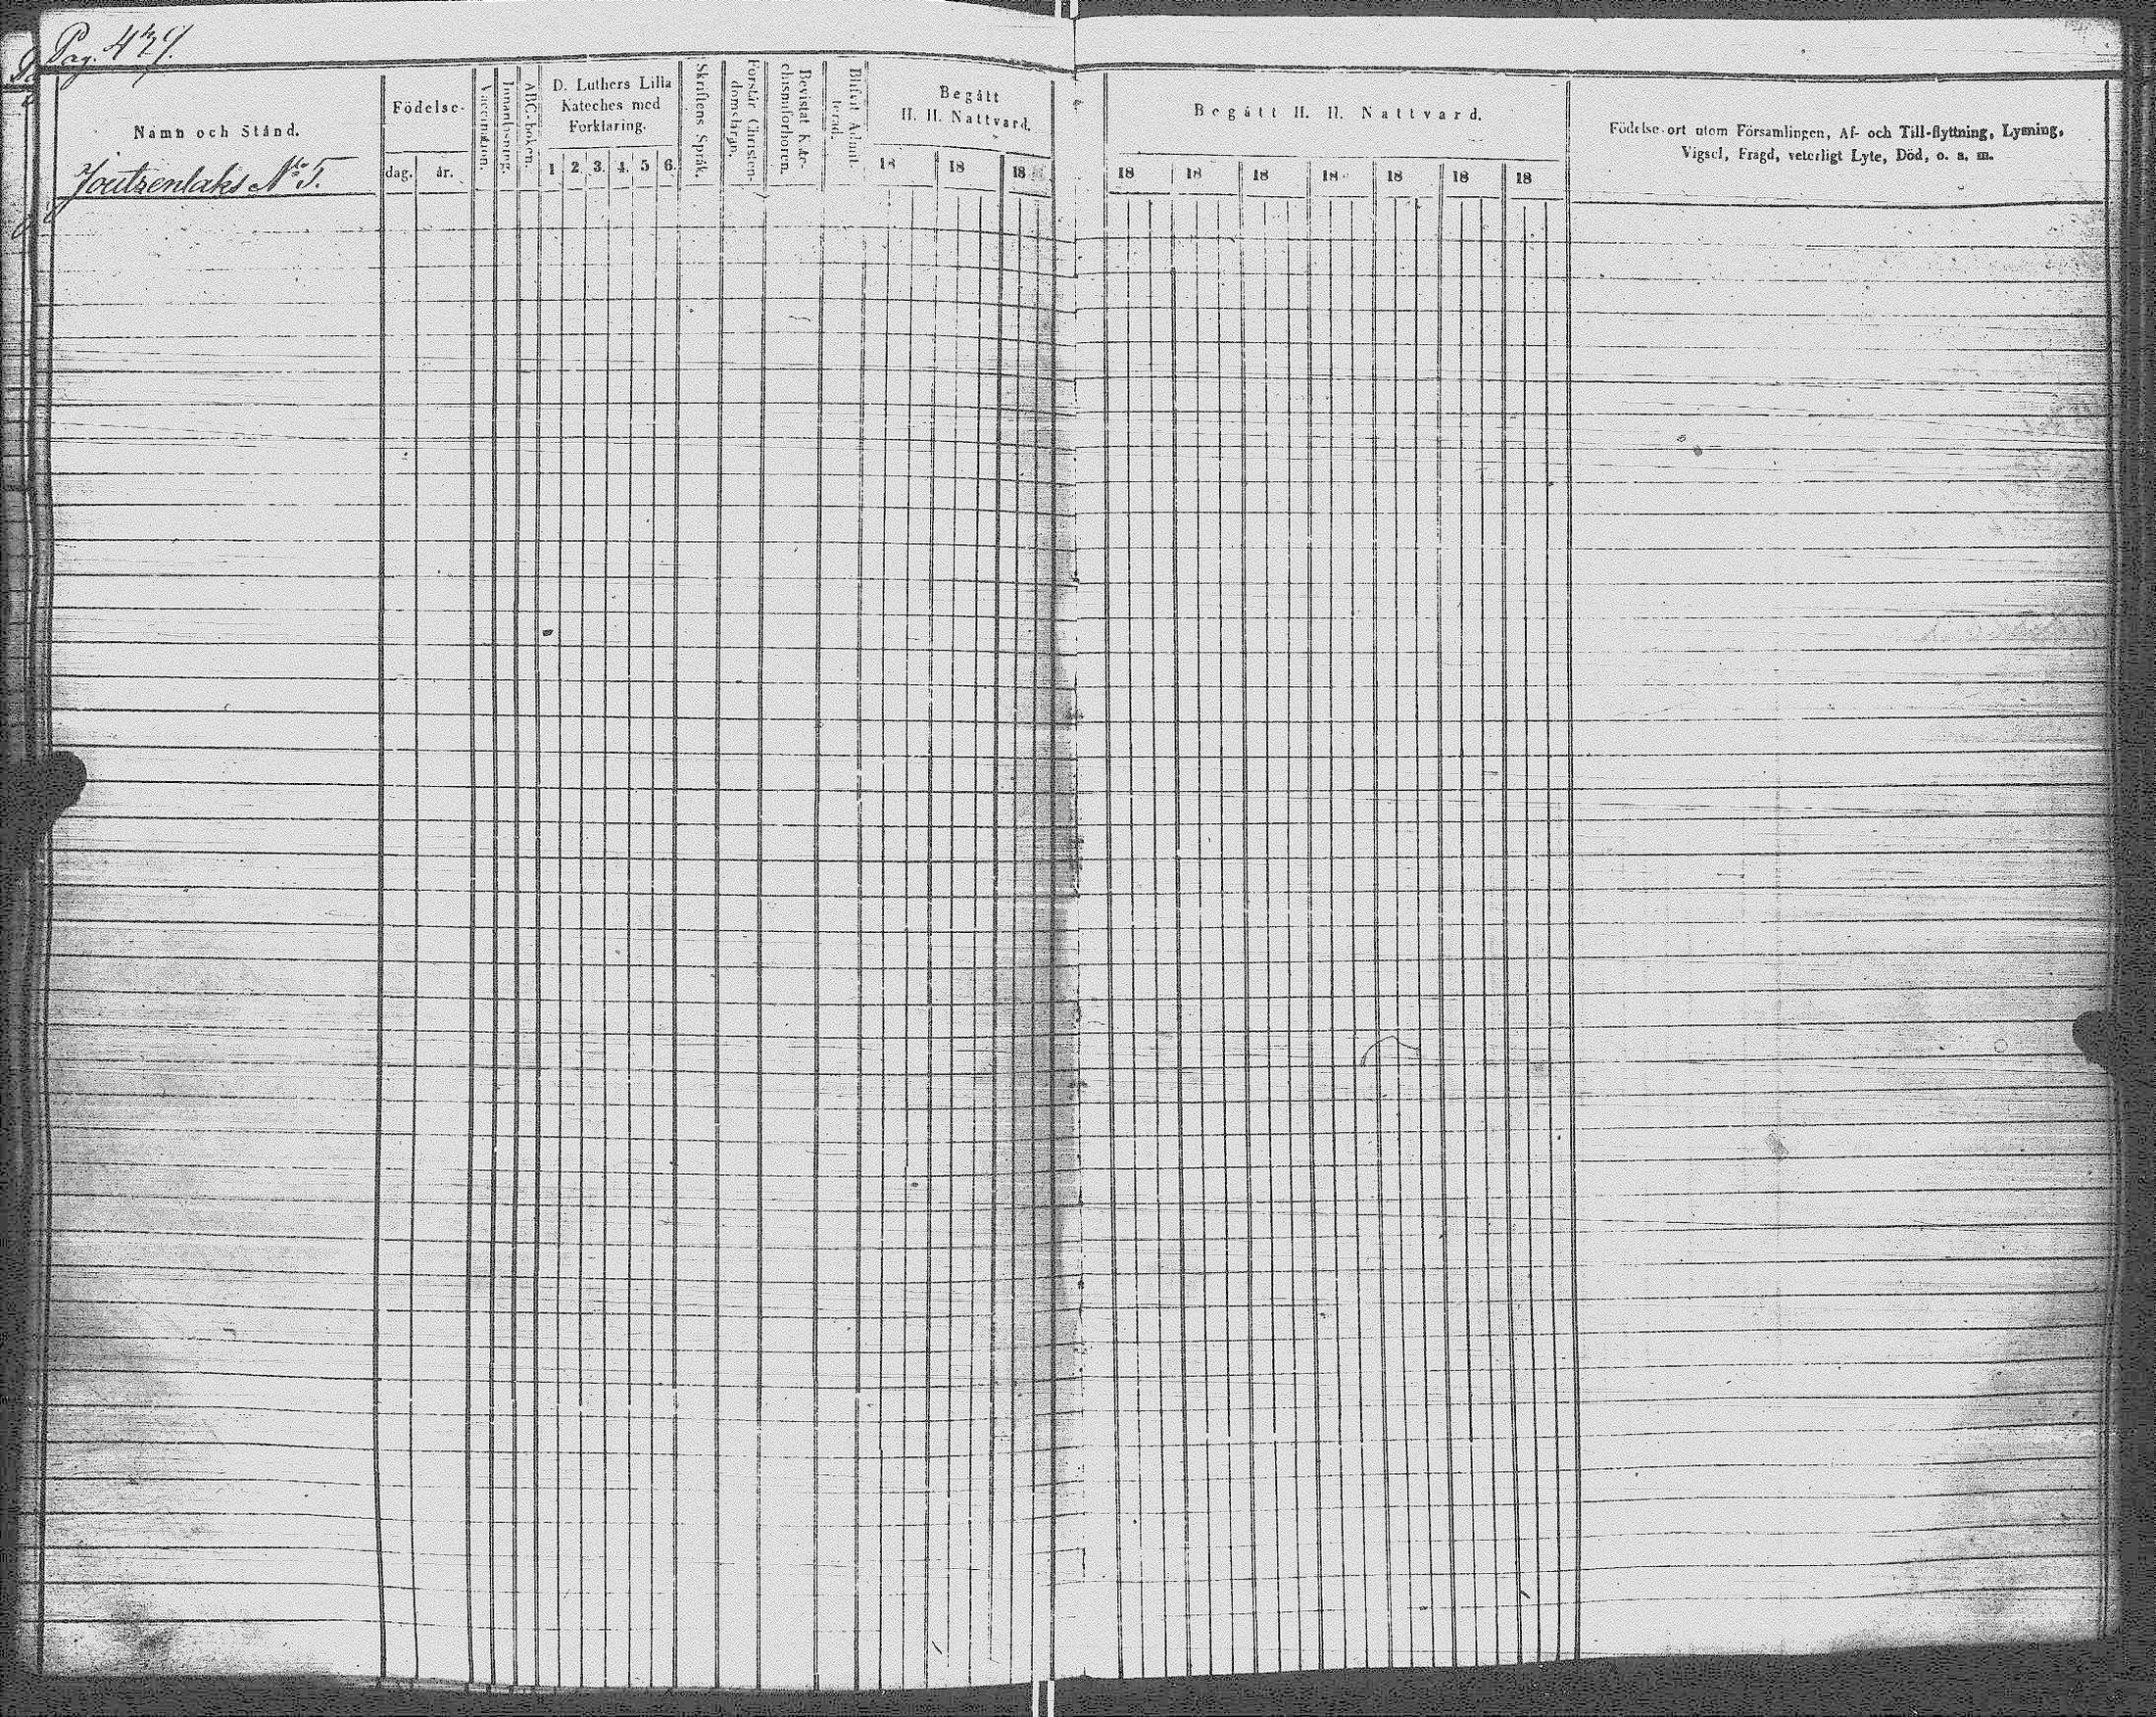 Pag. 437.
Namn och Stånd.
Joutsenlaks No 5.
Födelse-
dag.
år.
Vaccination.
Innanläsning.
ABC-boken.
D. Luthers Lilla
Kateches med
Förklaring.
1 2 3. 4. 5 6.
Skriftens Språk.
Förstår Christen-
domsläran.
Bevistat Kate-
chismiförhören.
Blifvit Admit-
terad.
Begått
H. H. Nattvard.
18 18 18
Begått H. H. Nattvard.
18 18 18 18 18 18 18
Födelse-ort utom Församlingen, Af- och Till-flyttning, Lysning,
Vigsel, Frägd, veterligt Lyte, Död, o. s. m.